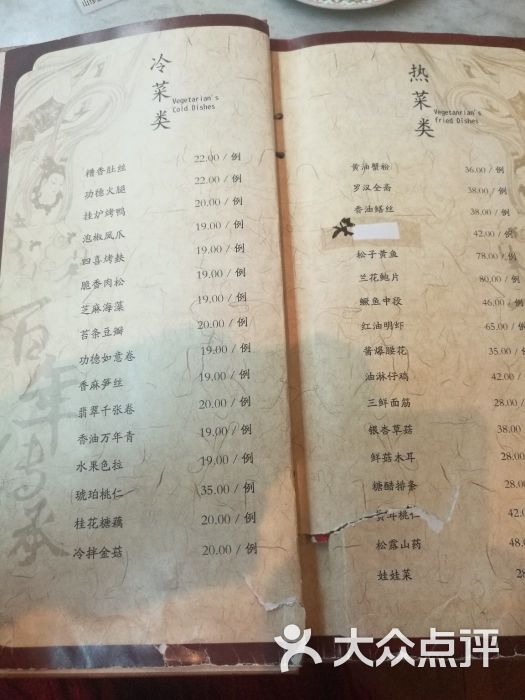 冷菜类
Vegetarian's
Cold Dishes
糟香肚丝 22.00 / 例
功德火腿 22.00 / 例
挂炉烤鸭 20.00 / 例
泡椒凤爪 19.00 / 例
四喜烤麸 19.00 / 例
脆香肉松 19.00 / 例
芝麻海藻 19.00 / 例
苔条豆瓣 20.00 / 例
功德如意卷 19.00 / 例
香麻笋丝 19.00 / 例
翡翠千张卷 20.00 / 例
香油万年青 19.00 / 例
水果色拉 19.00 / 例
琥珀桃仁 35.00 / 例
桂花糖藕 20.00 / 例
冷拌金菇 20.00 / 例
百年传承
热菜类
Vegetanrian's
fried Dishes
黄油蟹粉 36.00 / 例
罗汉全斋 38.00 / 例
香油鳝丝 38.00 / 例
42.00 / 例
松子黄鱼 78.00 / 例
兰花鲍片 80.00 / 例
鳜鱼中段 46.00 / 例
红油明虾 65.00 / 例
酱爆腰花 35.00 / 例
油淋仔鸡 42.00 / 例
三鲜面筋 28.00 /
银杏草菇 38.00
鲜菇木耳 28.00
糖醋排条 28.00
桃仁 42.0
松露山药 48.0
娃娃菜 28
大众点评